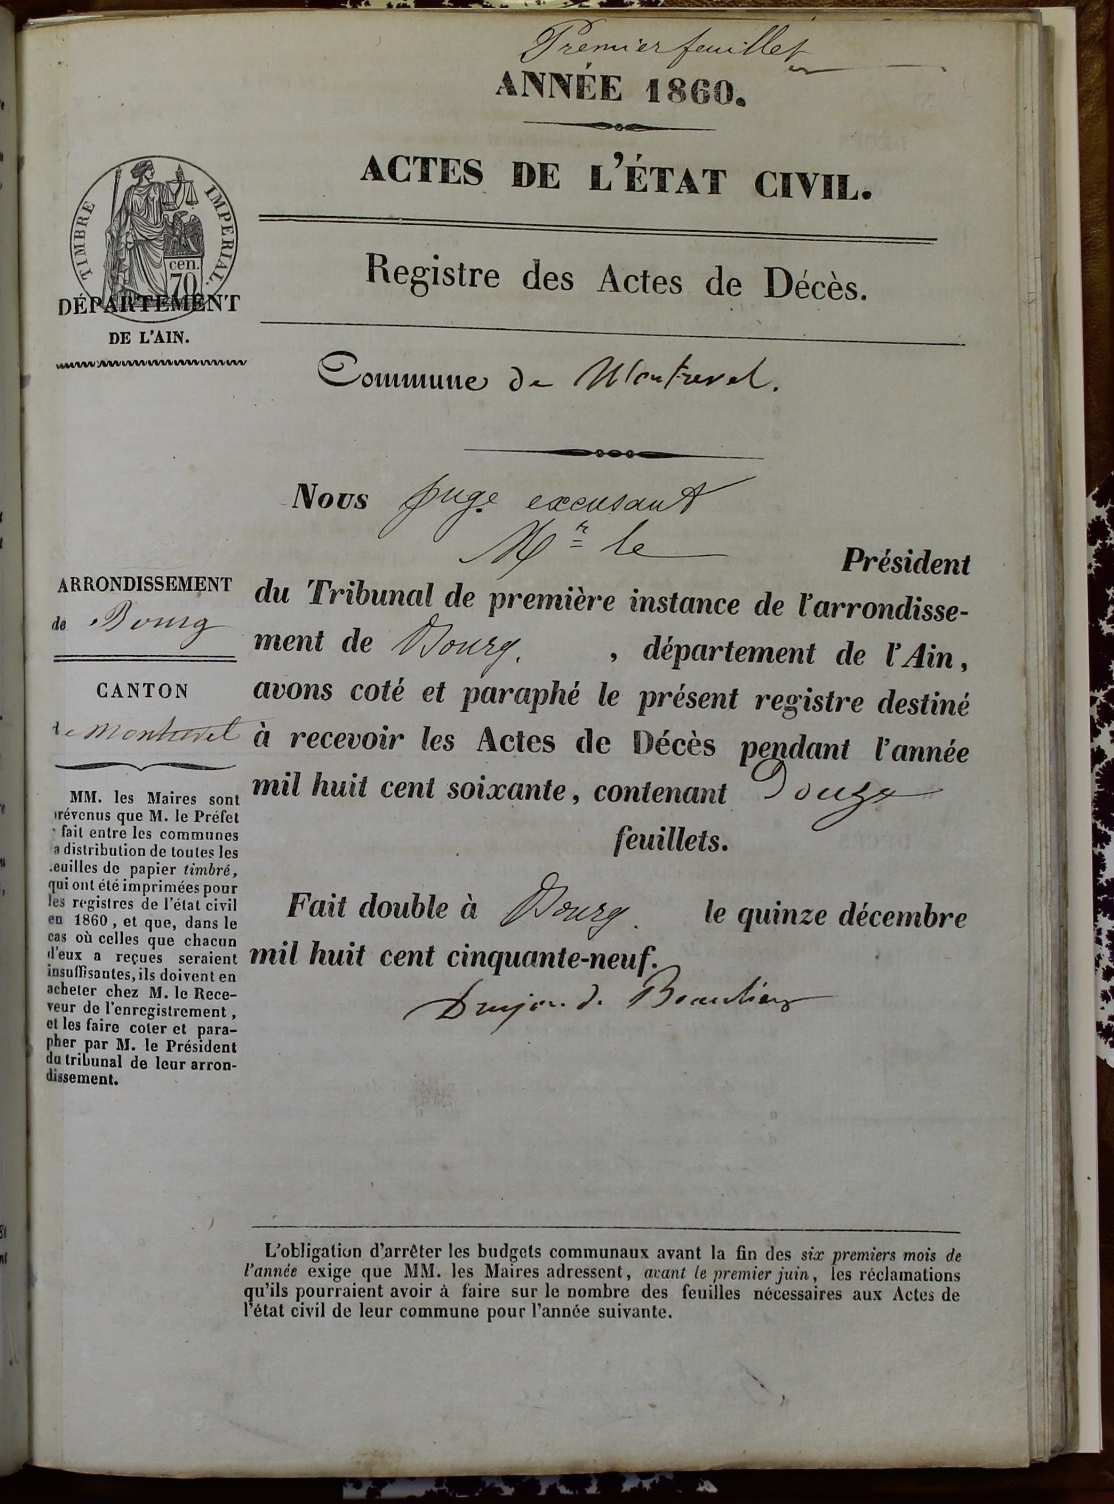 Premier feuillet
ANNÉE 1860.
ACTES DE L'ÉTAT CIVIL.
TIMBRE IMPERIAL.
cen.
70
DÉPARTEMENT
DE L'AIN.
Registre des Actes de Décès.
Commune de Montrevel.
Nous Juge excusant
Mr le Président
du Tribunal de première instance de l'arrondisse-
ment de Bourg, , département de l'Ain,
avons coté et paraphé le présent registre destiné
à recevoir les Actes de Décès pendant l'année
mil huit cent soixante, contenant Douze
feuillets.
Fait double à Bourg. le quinze décembre
mil huit cent cinquante-neuf.
de
ARRONDISSEMENT
de Bourg
CANTON
de Montrevel
MM. les Maires sont
prévenus que M. le Préfet
fait entre les communes
a distribution de toutes les
feuilles de papier timbré,
qui ont été imprimées pour
les registres de l'état civil
en 1860, et que, dans le
cas où celles que chacun
d'eux a reçues seraient
insuffisantes, ils doivent en
acheter chez M. le Rece-
veur de l'enregistrement,
et les faire coter et para-
pher par M. le Président
du tribunal de leur arron-
dissement.
L'obligation d'arrêter les budgets communaux avant la fin des six premiers mois de
l'année exige que MM. les Maires adressent, avant le premier juin, les réclamations
qu'ils pourraient avoir à faire sur le nombre des feuilles nécessaires aux Actes de
l'état civil de leur commune pour l'année suivante.